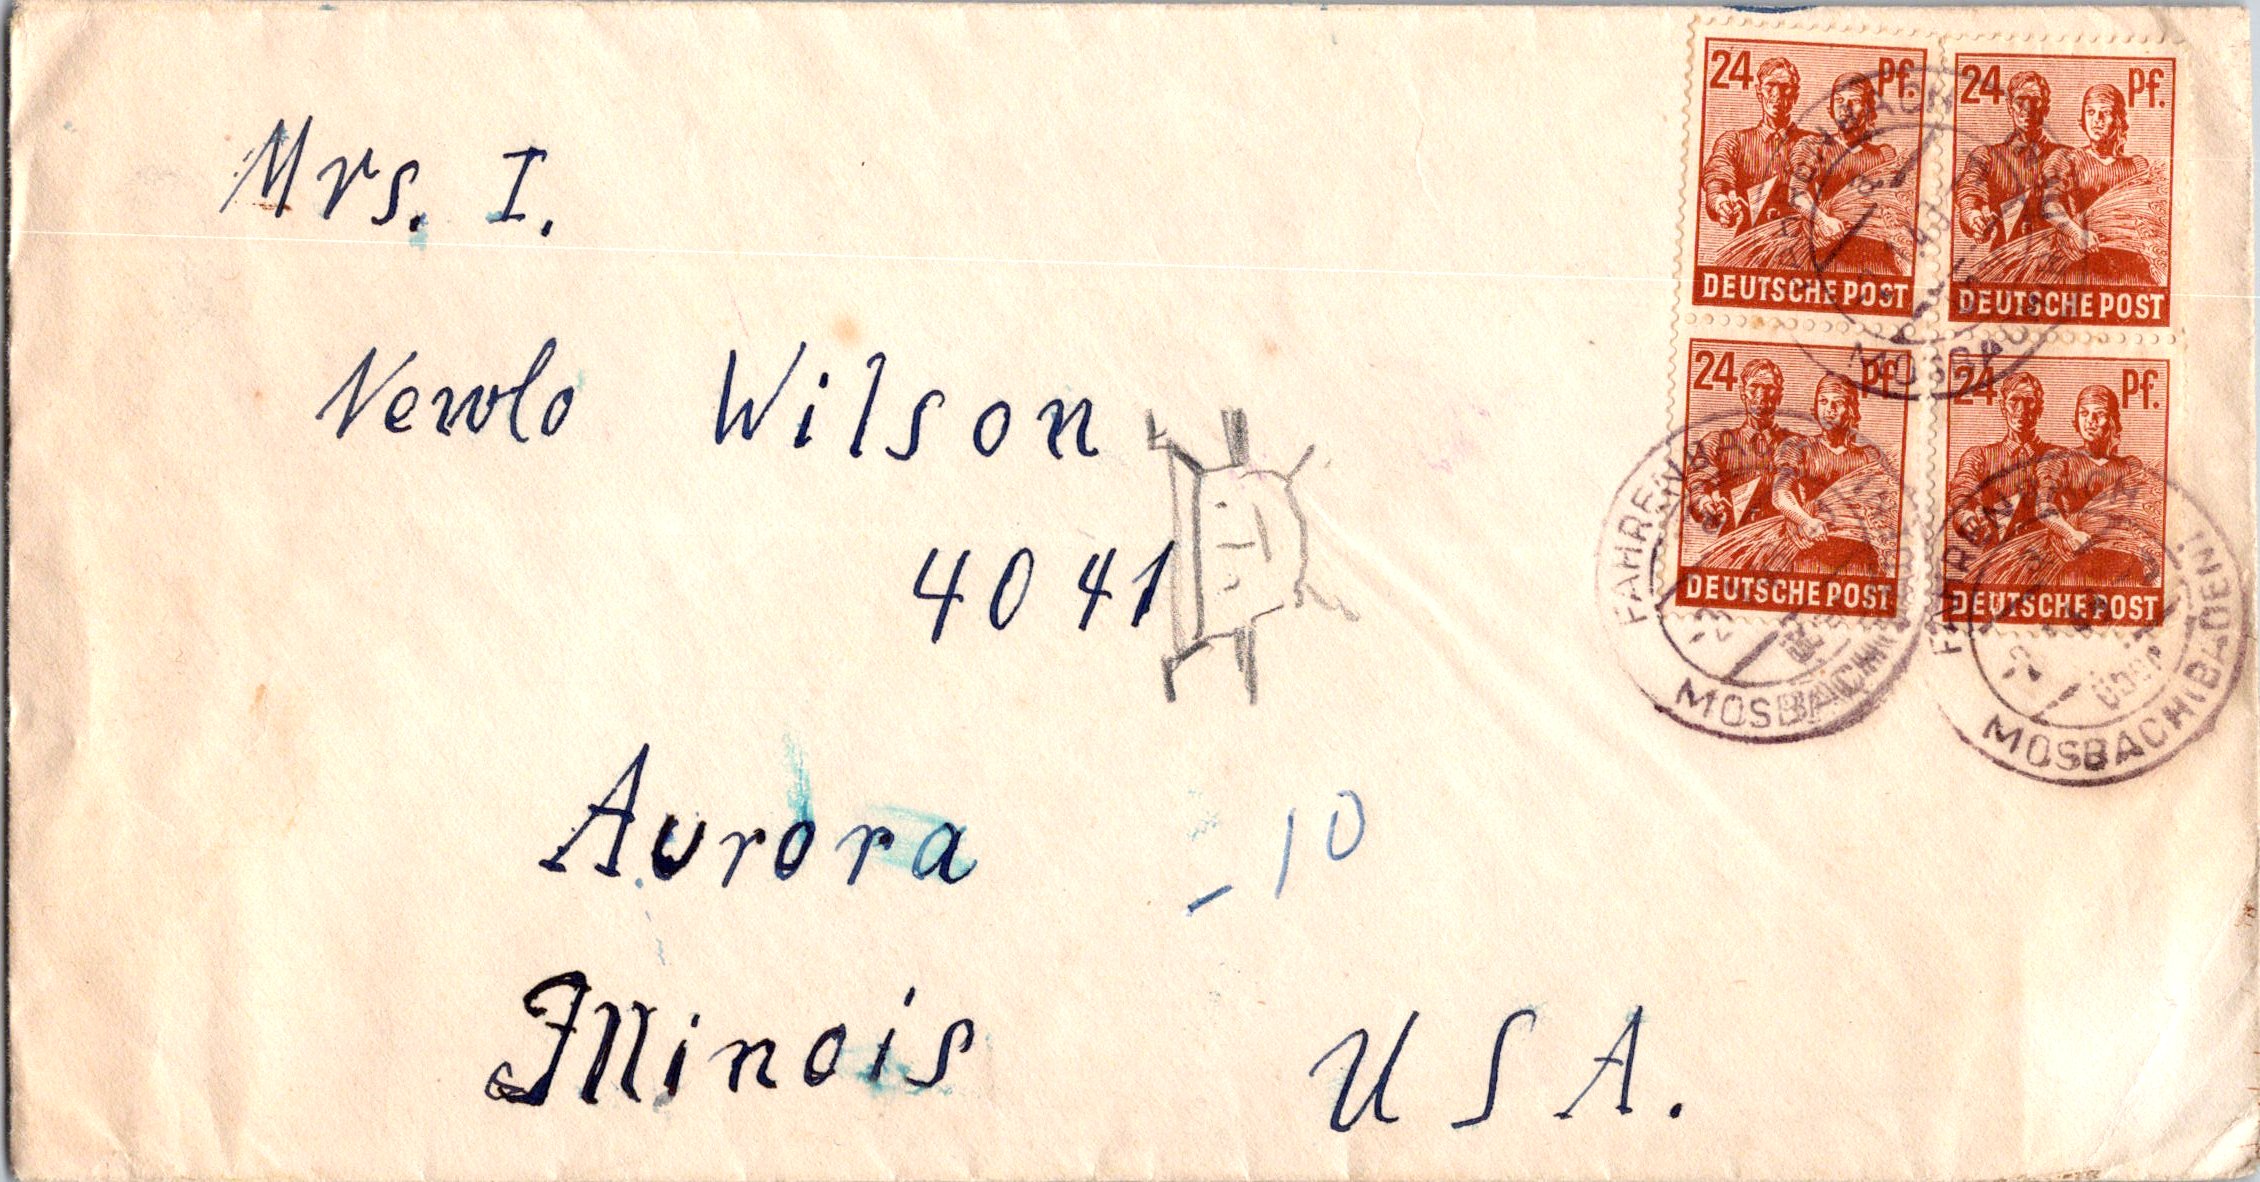 Mrs. I.
Newlo Wilson
4041
Aurora
- 10
Illinois
U S A.
24 Pf.
DEUTSCHE POST
24 Pf.
DEUTSCHE POST
24 Pf.
DEUTSCHE POST
24 Pf.
DEUTSCHE POST
FAHRENBACH
MOSBACH
FAHRENBACH
MOSBACH
FAHRENBACH
MOSBACH (BADEN)